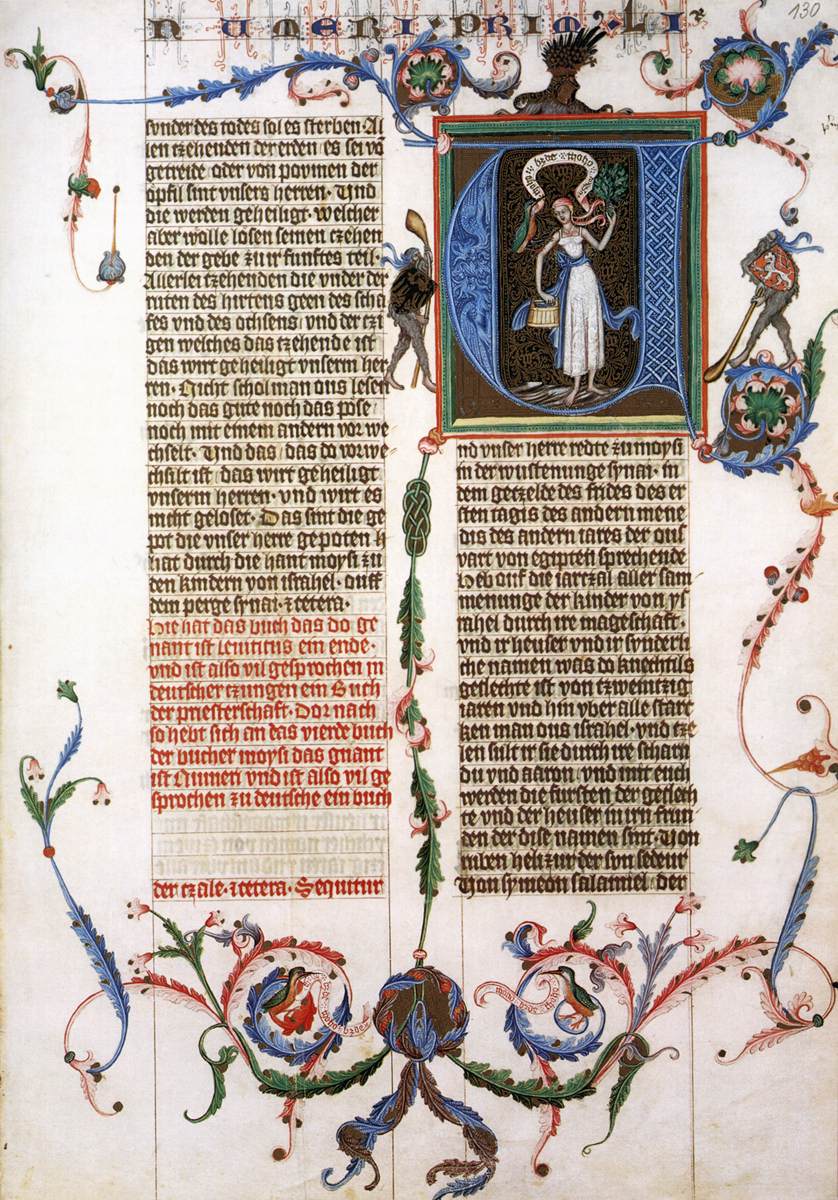 NUMERI · PRIM · LI
130
sunder des todes sol es sterben · Al
len czehenden der erden es sei vō
getreide oder von povmen der
opfil sint vnsers herren · Vnd
die werden geheiligt · welcher
aber wolle losen seinen czehen
den der gebe zu ir funftes teil ·
Allerlei czehenden die vnder der
ruten des hirtens geen des scha
fes vnd des ochsens vnd der czi
gen welches das czehende ist
das wirt geheiligt vnserm her
ren · Nicht schol man ous lesen
noch das gute noch das pose
noch mit einem andern vor we
chselt · Vnd das do vorwe
chsilt ist das wirt geheiligt
vnserm herren · vnd wirt es
nicht geloset · Das sint die ge
pot die vnser herre gepoten h
hat durch die hant moysi zu
den kindern von israhel · ouff
dem perge synai · et cetera ·
Hie hat das buch das do ge
nant ist leuiticus ein ende ·
vnd ist also vil gesprochen in
deutscher czungen ein Buch
der priesterschaft · Dor nach
so hebt sich an das vierde buch
der bucher moysi das gnant
ist Numeri vnd ist also vil ge
sprochen zu deutsche ein buch
der czale · et cetera · Sequitur
nd vnser herre redte zu moysi
in der wustenunge synai · in
dem getzelde des frides des er
sten tagis des andern mene
dis des andern iares der ous
vart von egipten sprechende
Heb ouf die iarczal aller sam
menunge der kinder von ys
rahel durch ire mageschaft ·
vnd ir heuser vnd ir synderli
che namen was do knechtils
geslechte ist von czweinczig
iaren vnd hin vber alle starc
ken man ous israhel · vnd cze
len sult ir sie durch ire scharn
du vnd aaron vnd mit euch
werden die fursten der geslech
te vnd der heuser in irn frun
den der dise namen sint · Von
ruben helizur der son sedeur
Von symeon salamiel der